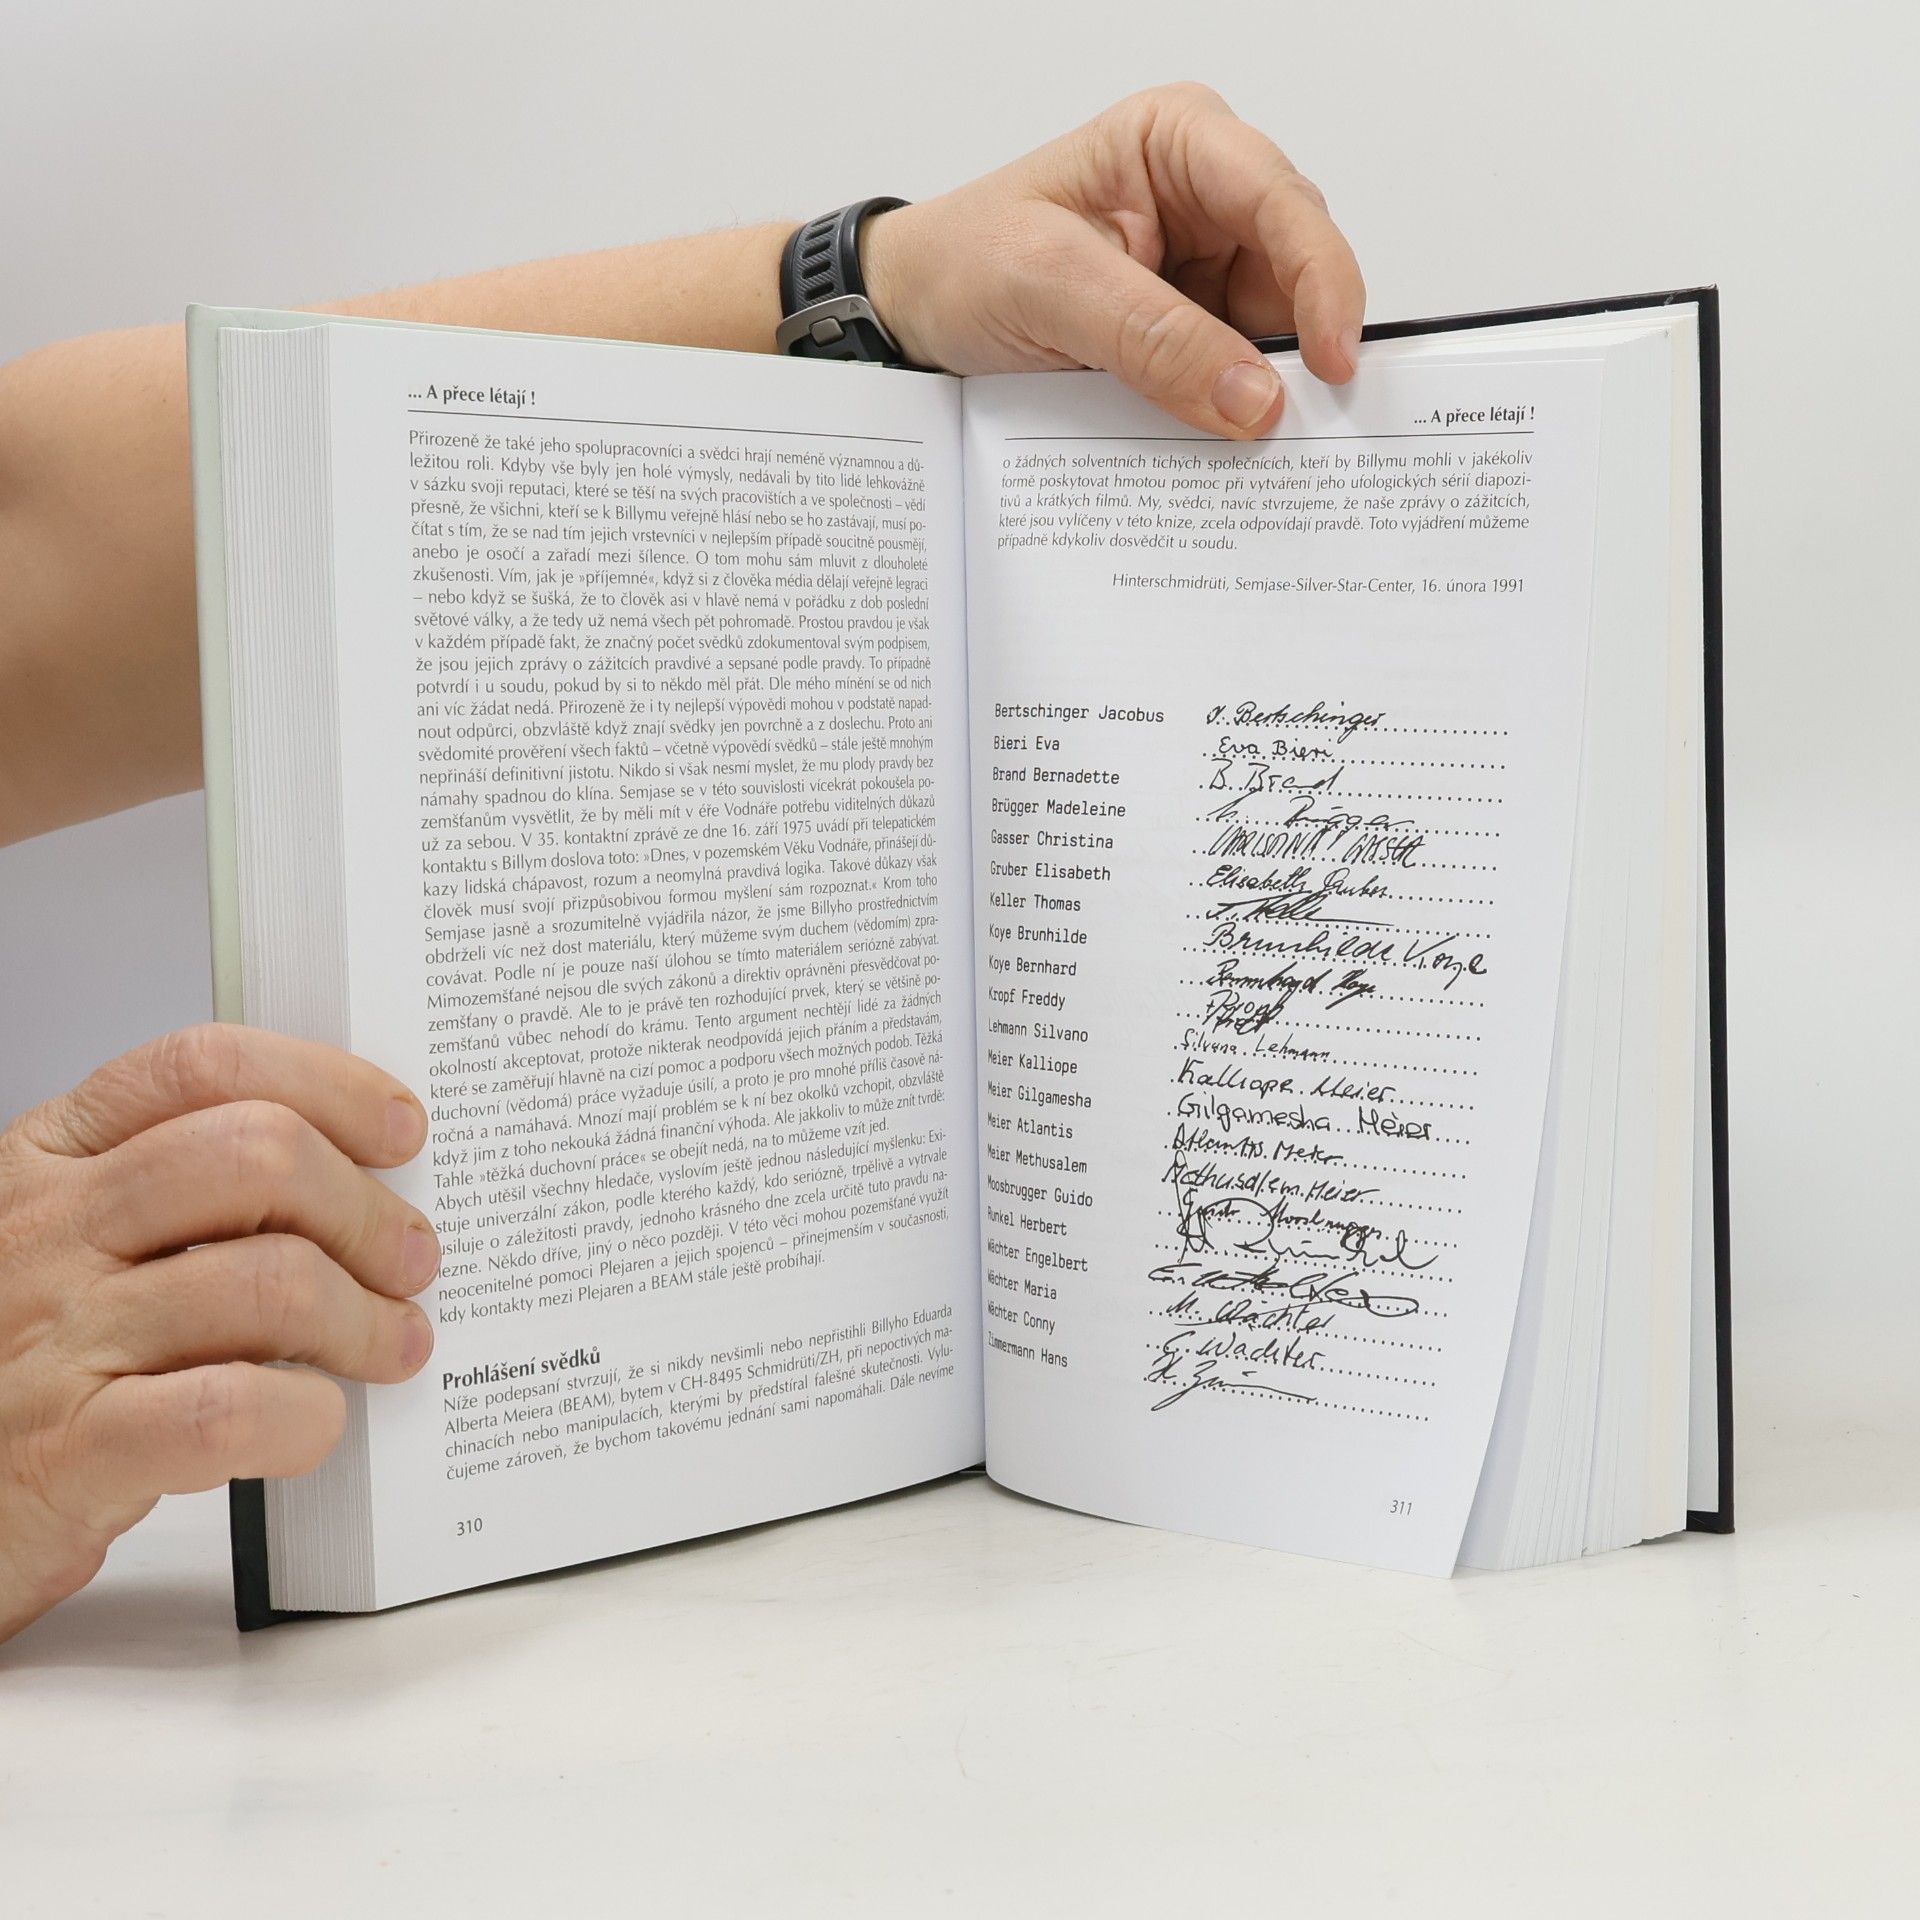 ... A přece létají !
Přirozeně že také jeho spolupracovníci a svědci hrají neméně významnou a dů-
ležitou roli. Kdyby vše byly jen holé výmysly, nedávali by tito lidé lehkovážně
v sázku svoji reputaci, které se těší na svých pracovištích a ve společnosti – vědí
přesně, že všichni, kteří se k Billymu veřejně hlásí nebo se ho zastávají, musí po-
čítat s tím, že se nad tím jejich vrstevníci v nejlepším případě soucitně pousmějí,
anebo je osočí a zařadí mezi šílence. O tom mohu sám mluvit z dlouholeté
zkušenosti. Vím, jak je »příjemné«, když si z člověka média dělají veřejně legraci
– nebo když se šušká, že to člověk asi v hlavě nemá v pořádku z dob poslední
světové války, a že tedy už nemá všech pět pohromadě. Prostou pravdou je však
v každém případě fakt, že značný počet svědků zdokumentoval svým podpisem,
že jsou jejich zprávy o zážitcích pravdivé a sepsané podle pravdy. To případně
potvrdí i u soudu, pokud by si to někdo měl přát. Dle mého mínění se od nich
ani víc žádat nedá. Přirozeně že i ty nejlepší výpovědi mohou v podstatě napad-
nout odpůrci, obzvláště když znají svědky jen povrchně a z doslechu. Proto ani
svědomité prověření všech faktů – včetně výpovědí svědků – stále ještě mnohým
nepřináší definitivní jistotu. Nikdo si však nesmí myslet, že mu plody pravdy bez
námahy spadnou do klína. Semjase se v této souvislosti vícekrát pokoušela po-
zemšťanům vysvětlit, že by měli mít v éře Vodnáře potřebu viditelných důkazů
už za sebou. V 35. kontaktní zprávě ze dne 16. září 1975 uvádí při telepatickém
kontaktu s Billym doslova toto: »Dnes, v pozemském Věku Vodnáře, přinášejí dů-
kazy lidská chápavost, rozum a neomylná pravdivá logika. Takové důkazy však
člověk musí svojí přizpůsobivou formou myšlení sám rozpoznat.« Krom toho
Semjase jasně a srozumitelně vyjádřila názor, že jsme Billyho prostřednictvím
obdrželi víc než dost materiálu, který můžeme svým duchem (vědomím) zpra-
covávat. Podle ní je pouze naší úlohou se tímto materiálem seriózně zabývat.
Mimozemšťané nejsou dle svých zákonů a direktiv oprávněni přesvědčovat po-
zemšťany o pravdě. Ale to je právě ten rozhodující prvek, který se většině po-
zemšťanů vůbec nehodí do krámu. Tento argument nechtějí lidé za žádných
okolností akceptovat, protože nikterak neodpovídá jejich přáním a představám,
které se zaměřují hlavně na cizí pomoc a podporu všech možných podob. Těžká
duchovní (vědomá) práce vyžaduje úsilí, a proto je pro mnohé příliš časově ná-
ročná a namáhavá. Mnozí mají problém se k ní bez okolků vzchopit, obzvláště
když jim z toho nekouká žádná finanční výhoda. Ale jakkoliv to může znít tvrdě:
Tahle »těžká duchovní práce« se obejít nedá, na to můžeme vzít jed.
Abych utěšil všechny hledače, vyslovím ještě jednou následující myšlenku: Exi-
stuje univerzální zákon, podle kterého každý, kdo seriózně, trpělivě a vytrvale
usiluje o záležitosti pravdy, jednoho krásného dne zcela určitě tuto pravdu na-
lezne. Někdo dříve, jiný o něco později. V této věci mohou pozemšťané využít
neocenitelné pomoci Plejaren a jejich spojenců – přinejmenším v současnosti,
kdy kontakty mezi Plejaren a BEAM stále ještě probíhají.
Prohlášení svědků
Níže podepsaní stvrzují, že si nikdy nevšimli nebo nepřistihli Billyho Eduarda
Alberta Meiera (BEAM), bytem v CH-8495 Schmidrüti/ZH, při nepoctivých ma-
chinacích nebo manipulacích, kterými by předstíral falešné skutečnosti. Vylu-
čujeme zároveň, že bychom takovému jednání sami napomáhali. Dále nevíme
310
... A přece létají !
o žádných solventních tichých společnících, kteří by Billymu mohli v jakékoliv
formě poskytovat hmotou pomoc při vytváření jeho ufologických sérií diapozi-
tivů a krátkých filmů. My, svědci, navíc stvrzujeme, že naše zprávy o zážitcích,
které jsou vylíčeny v této knize, zcela odpovídají pravdě. Toto vyjádření můžeme
případně kdykoliv dosvědčit u soudu.
Hinterschmidrüti, Semjase-Silver-Star-Center, 16. února 1991
Bertschinger Jacobus J. Bertschinger
Bieri Eva Eva Bieri
Brand Bernadette B. Brand
Brügger Madeleine Brügger
Gasser Christina
Gruber Elisabeth Elisabeth Gruber
Keller Thomas
Koye Brunhilde Brunhilde Koye
Koye Bernhard Bernhard Koye
Kropf Freddy
Lehmann Silvano Silvano Lehmann
Meier Kalliope Kalliope Meier
Meier Gilgamesha Gilgamesha Meier
Meier Atlantis Atlantis Meier
Meier Methusalem Methusalem Meier
Moosbrugger Guido Guido Moosbrugger
Runkel Herbert
Wächter Engelbert
Wächter Maria M. Wächter
Wächter Conny C. Wächter
Zimmermann Hans
311